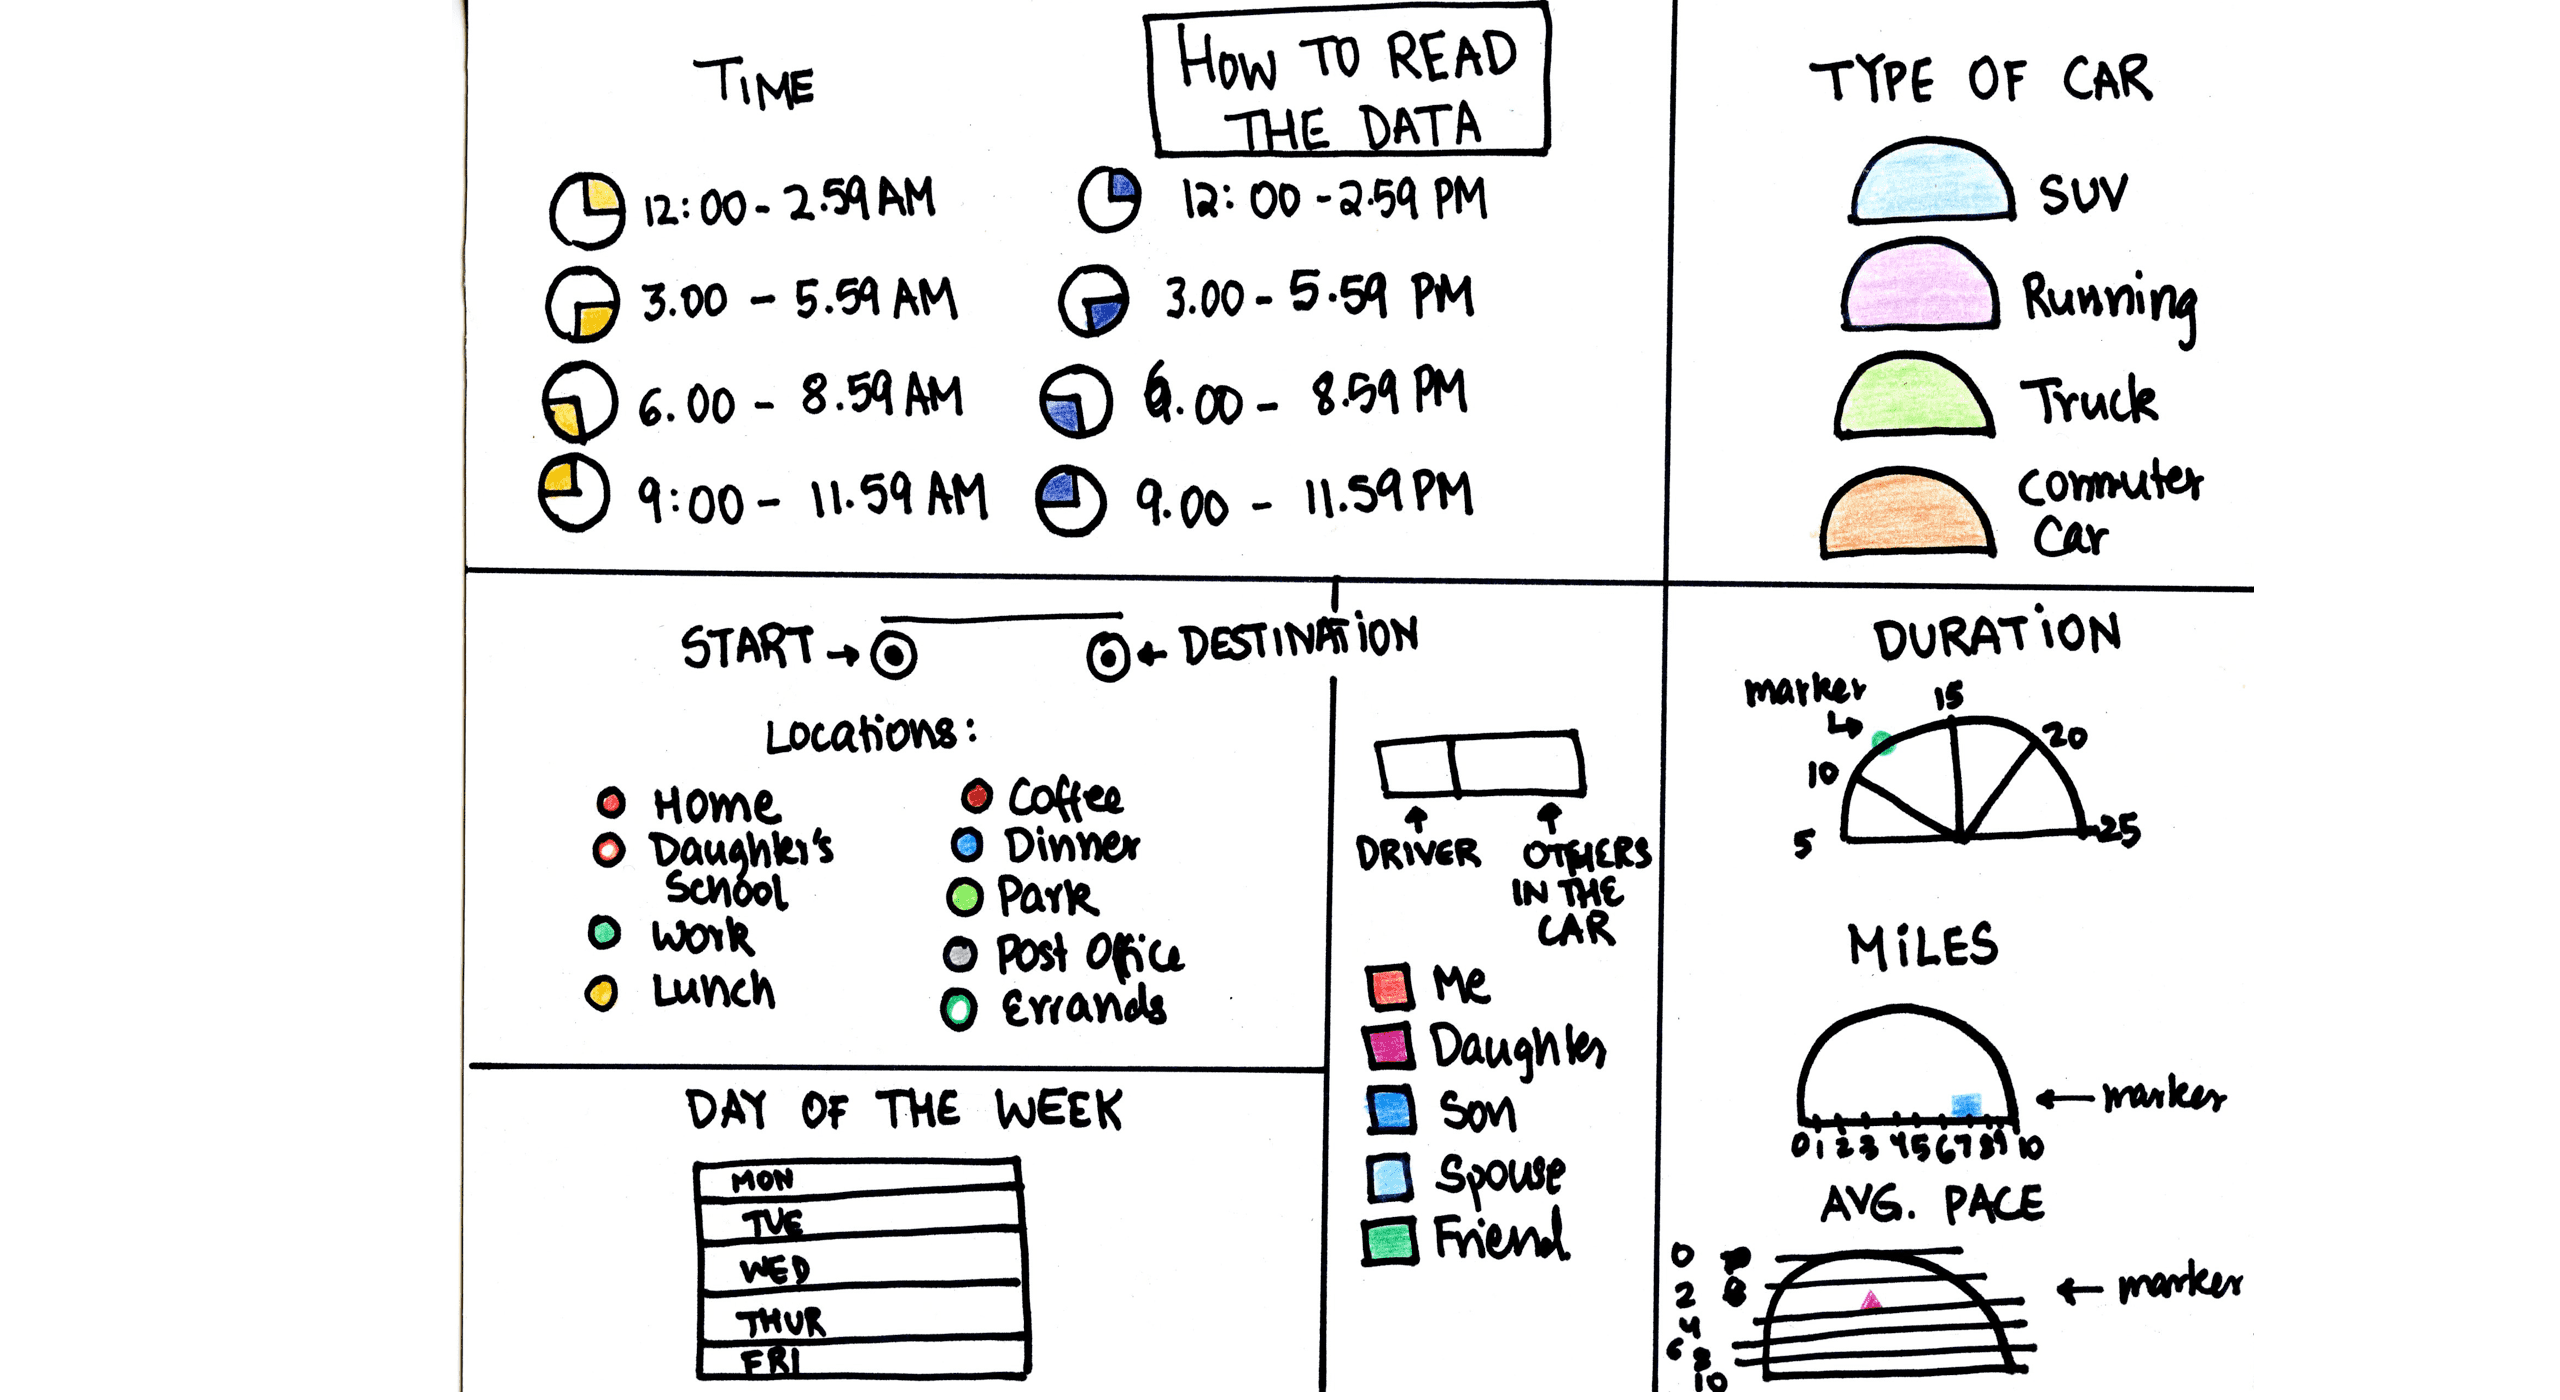 HOW TO READ
THE DATA
TIME
12:00 - 2.59 AM
3.00 - 5.59 AM
6.00 - 8.59 AM
9:00 - 11.59 AM
12:00 - 2.59 PM
3.00 - 5.59 PM
6.00 - 8.59 PM
9.00 - 11.59 PM
TYPE OF CAR
SUV
Running
Truck
Commuter
Car
START → ← DESTINATION
Locations:
Home
Daughter's
School
Work
Lunch
Coffee
Dinner
Park
Post Office
Errands
DAY OF THE WEEK
MON
TUE
WED
THUR
FRI
DRIVER
OTHERS
IN THE
CAR
Me
Daughter
Son
Spouse
Friend
DURATION
marker
5 10 15 20 25
MILES
← marker
0 1 2 3 4 5 6 7 8 9 10
AVG. PACE
← marker
0
2
4
6
8
10